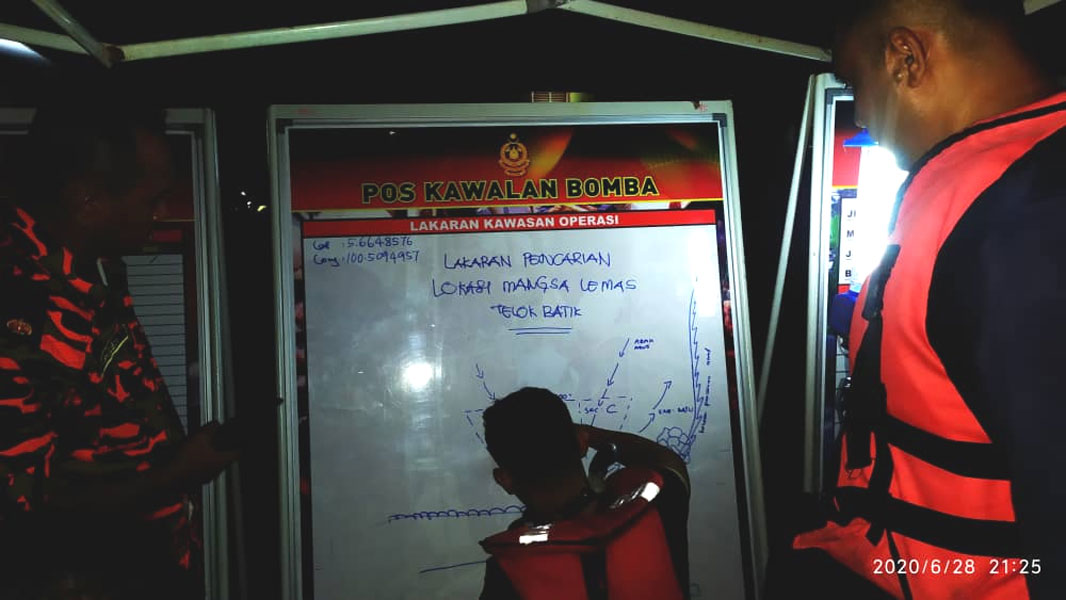 POS KAWALAN BOMBA
LAKARAN KAWASAN OPERASI
Lat : 5.6648576
Long : 100.5094957
LAKARAN PENCARIAN
LOKASI MANGSA LEMAS
TELOK BATIK
ARAH
SEC C
2020/6/28 21:25